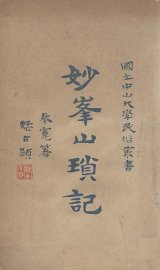 國立中山大學民俗叢書
妙峯山瑣記
奉寬著